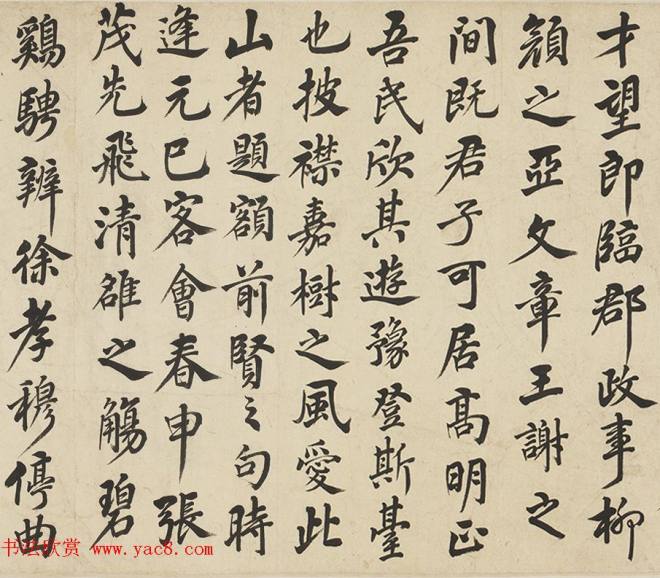 才望即臨郡政事栁
頟之亞文章王謝之
間既君子可居髙明正
吾民欣其遊豫登斯臺
也披襟嘉樹之風愛此
山者題額前賢之句時
逢元巳客會春申張
茂先飛清雒之觴碧
鷄騁辨徐孝穆停曲
书法欣赏 www.yac8.com